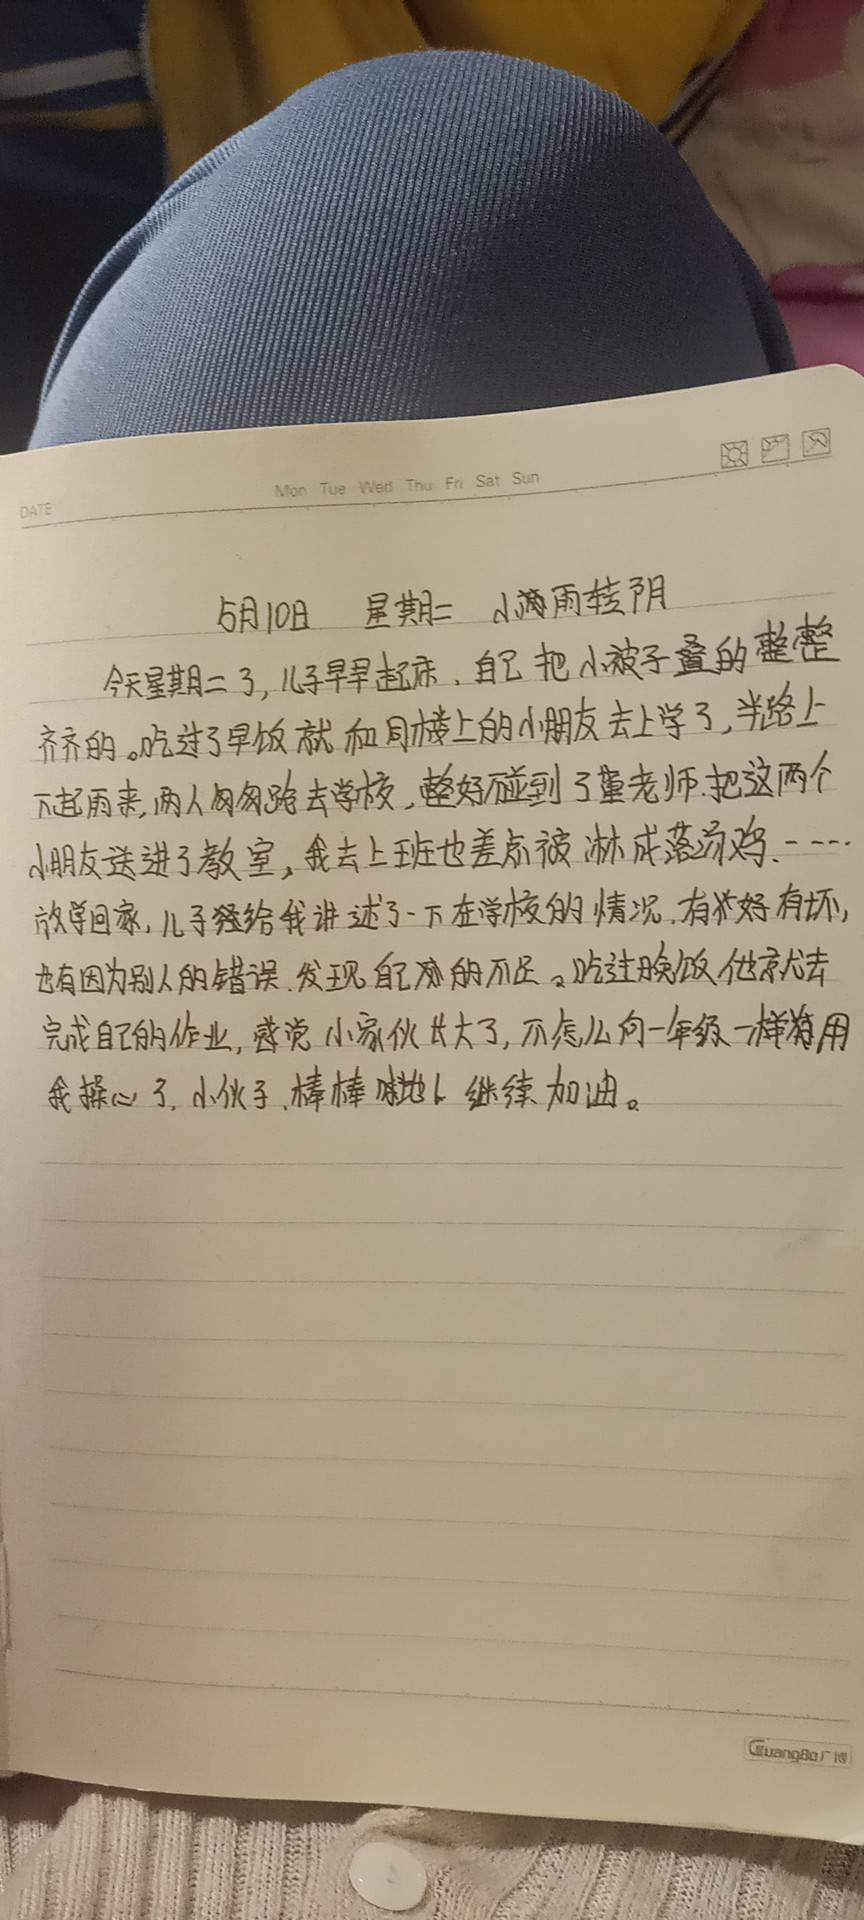 DATE
Mon Tue Wed Thu Fri Sat Sun
5月10日 星期二 小雨转阴
今天星期二了,儿子早早起床、自己把小被子叠的整整
齐齐的。吃过了早饭就和同楼上的小朋友去上学了,半路上
下起雨来,两人匆匆跑去学校,整好碰到了董老师.把这两个
小朋友送进了教室,我去上班也差点被淋成落汤鸡.----
放学回家,儿子给我讲述了一下在学校的情况.有好有坏,
也有因为别人的错误.发现自己的不足。吃过晚饭他就去
完成自己的作业,感觉小家伙长大了,不怎么向一年级一样用
我操心了,小伙子、棒棒哒!继续加油。
GuangBo广博